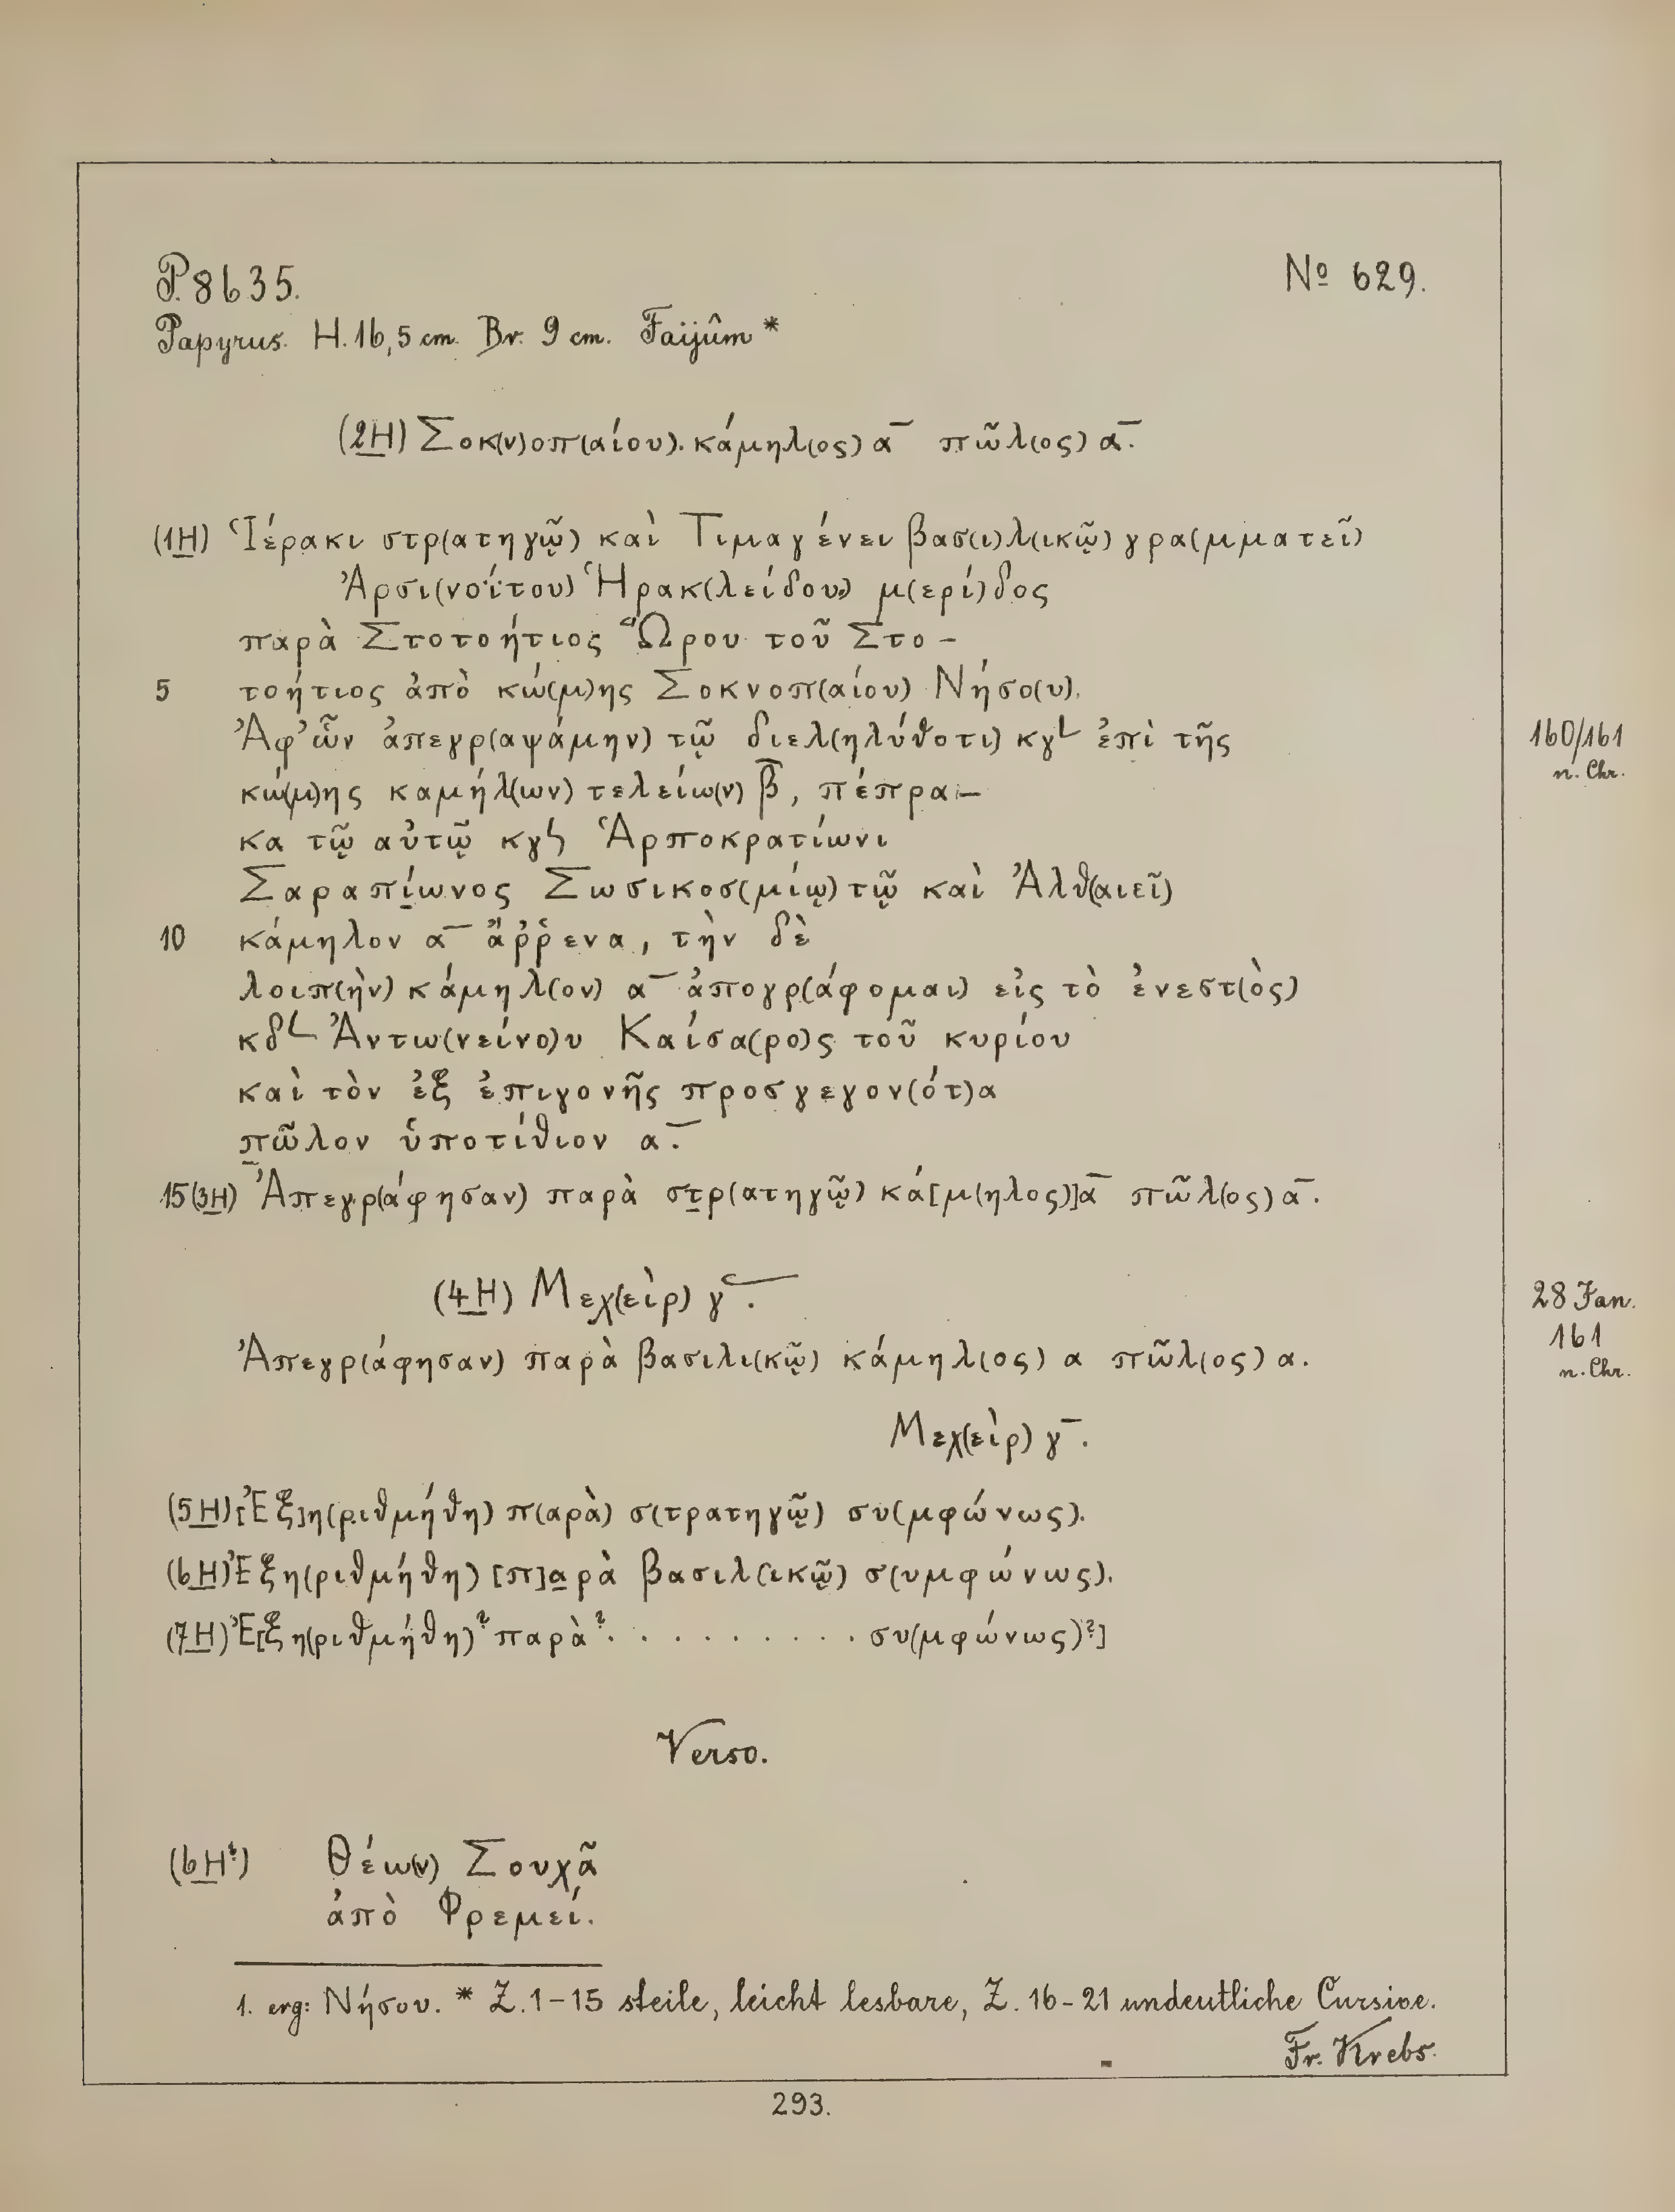 P. 8635. No 629.
Papyrus. H. 16,5 cm. Br. 9 cm. Faijûm *
(2H) Σοκ(ν)οπ(αίου). κάμηλ(ος) α̅ πῶλ(ος) α̅.
(1H) Ἱέρακι στρ(ατηγῷ) καὶ Τιμαγένει βασ(ι)λ(ικῷ) γρα(μματεῖ)
Ἀρσι(νοΐτου) Ἡρακ(λείδου) μ(ερί)δος
παρὰ Στοτοήτιος Ὥρου τοῦ Στο-
5 τοήτιος ἀπὸ κώ(μ)ης Σοκνοπ(αίου) Νήσο(υ).
Ἀφ' ὧν ἀπεγρ(αψάμην) τῷ διελ(ηλύθοτι) κγL ἐπὶ τῆς 160/161
n. Chr.
κώ(μ)ης καμήλ(ων) τελείω(ν) β̅, πέπρα-
κα τῷ αὐτῷ κγϞ Ἁρποκρατίωνι
Σαραπί̲ωνος Σωσικοσ(μίῳ) τῷ καὶ Ἀλθ(αιεῖ)
10 κάμηλον α̅ ἄῤῥενα, τὴν δὲ
λοιπ(ὴν) κάμηλ(ον) α̅ ἀπογρ(άφομαι) εἰς τὸ ἐνεστ(ὸς)
κδL Ἀντω(νείνο)υ Καίσα(ρο)ς τοῦ κυρίου
καὶ τὸν ἐξ ἐπιγονῆς προσγεγον(ότ)α
π̲ῶλον ὑποτίθιον α̅.
15 (3H) Ἀπεγρ(άφησαν) παρὰ στ̲ρ(ατηγῷ) κά[μ(ηλος)] α̅ πῶλ(ος) α̅.
(4H) Μεχ(εὶρ) γ̅. 28 Jan.
161
n. Chr.
Ἀπεγρ(άφησαν) παρὰ βασιλι(κῷ) κάμηλ(ος) α πῶλ(ος) α.
Μεχ(εὶρ) γ̅.
(5H) [Ἐξ]η(ριθμήθη) π(αρὰ) σ(τρατηγῷ) συ(μφώνως).
(6H) Ἐξη(ριθμήθη) [π]α̲ρὰ βασιλ(ικῷ) σ(υμφώνως).
(7H) Ἐ[ξη(ριθμήθη)? παρὰ? . . . . . . . . . συ(μφώνως)?]
Verso.
(6H?) Θέω(ν) Σουχᾶ
ἀπὸ Φρεμεί.
1. erg: Νήσου. * Z. 1-15 steile, leicht lesbare, Z. 16-21 undeutliche Cursive.
Fr. Krebs.
293.